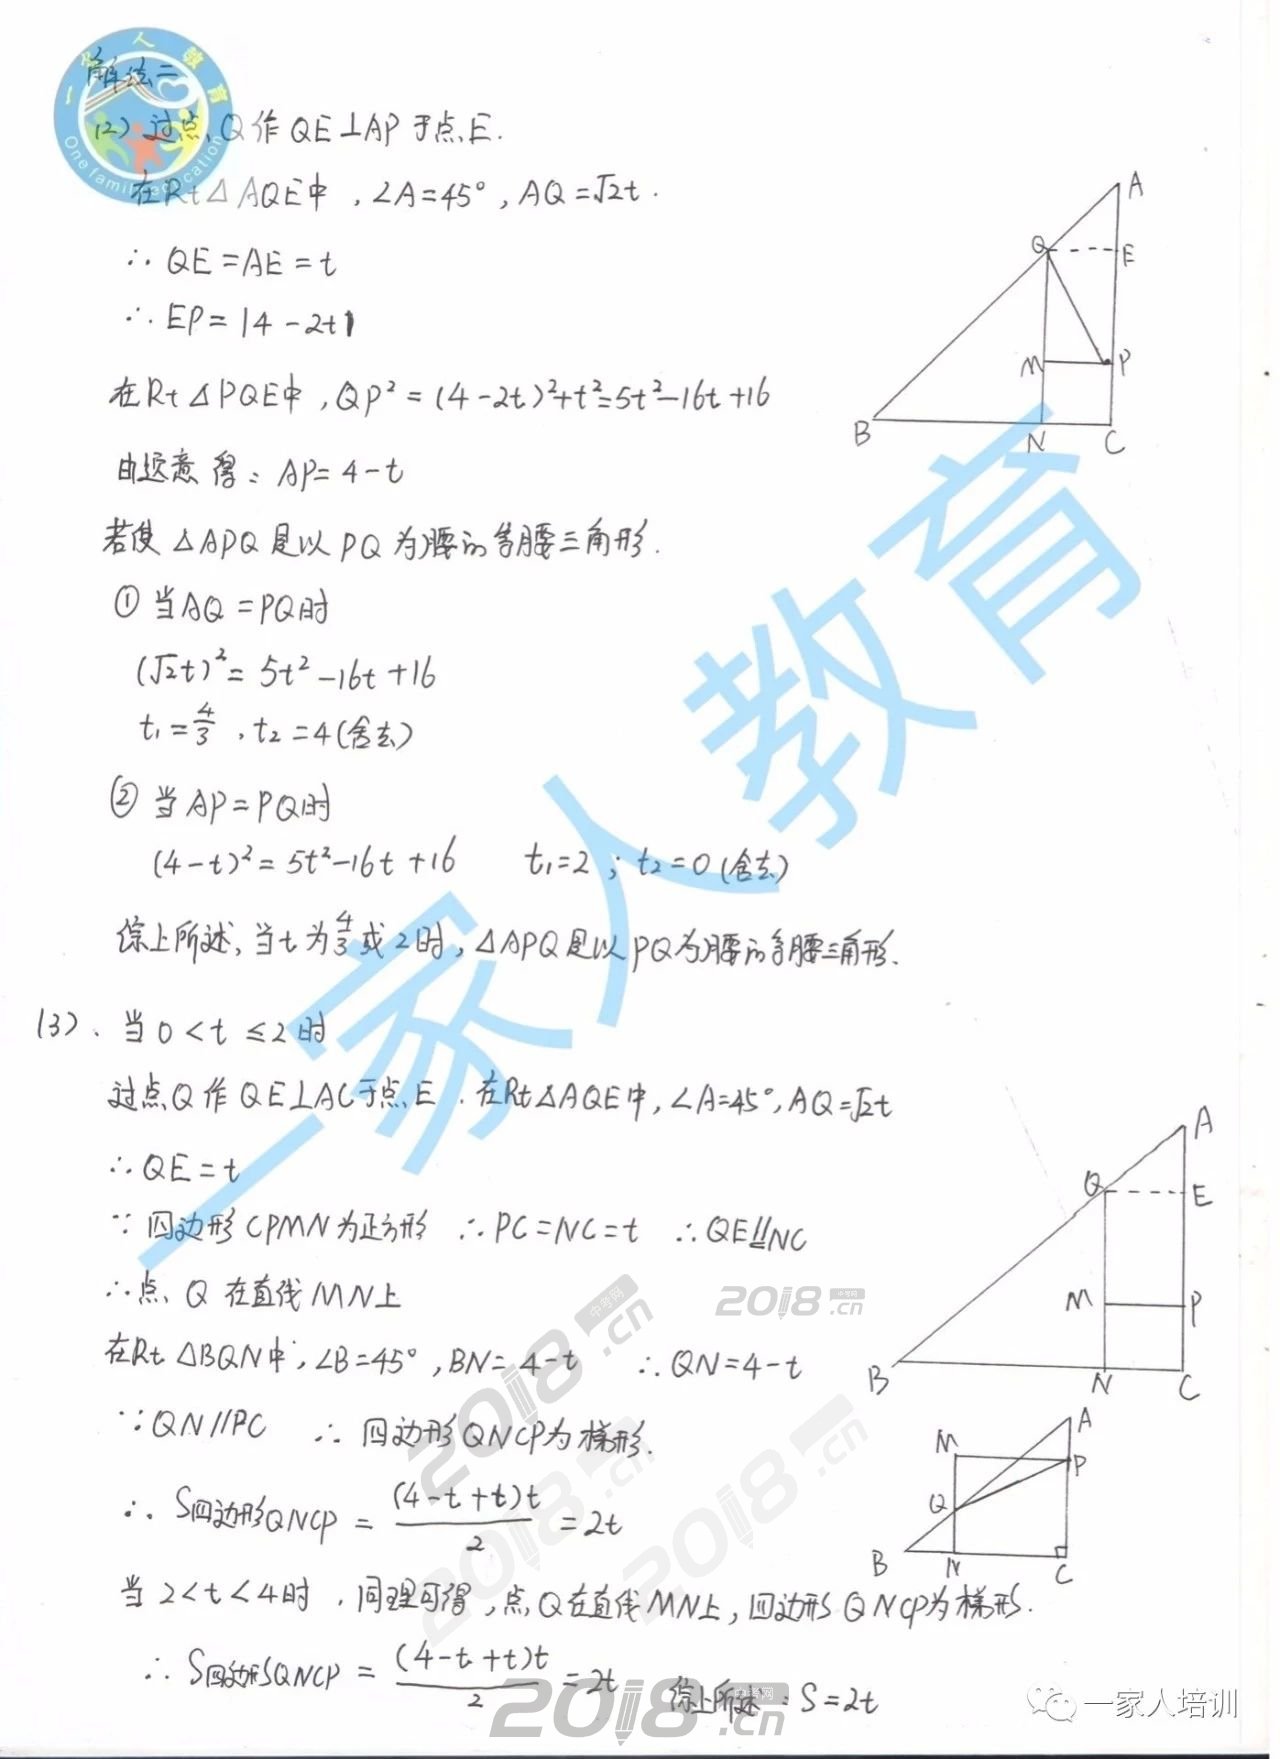 解法二
(2) 过点Q作QE⊥AP于点E.
在Rt△AQE中,∠A=45°,AQ=√2t.
∴QE=AE=t
∴EP=|4-2t|
在Rt△PQE中,QP²=(4-2t)²+t²=5t²-16t+16
由题意得:AP=4-t
若使△APQ是以PQ为腰的等腰三角形.
① 当AQ=PQ时
(√2t)²=5t²-16t+16
t₁=4/3,t₂=4(舍去)
② 当AP=PQ时
(4-t)²=5t²-16t+16 t₁=2;t₂=0(舍去)
综上所述,当t为4/3或2时,△APQ是以PQ为腰的等腰三角形.
(3).当0<t≤2时
过点Q作QE⊥AC于点E.在Rt△AQE中,∠A=45°,AQ=√2t
∴QE=t
∵四边形CPMN为正方形 ∴PC=NC=t ∴QE∥=NC
∴点Q在直线MN上
在Rt△BQN中,∠B=45°,BN=4-t ∴QN=4-t
∵QN∥PC ∴四边形QNCP为梯形.
∴S四边形QNCP=(4-t+t)t/2=2t
当2<t<4时,同理可得,点Q在直线MN上,四边形QNCP为梯形.
∴S四边形QNCP=(4-t+t)t/2=2t 综上所述:S=2t
A
Q
E
M
P
B
N
C
A
Q
E
M
P
B
N
C
A
M
P
Q
B
N
C
一家人教育
One family education
一家人教育
2018.cn
中考网
2018.cn
中考网
2018.cn
2018.cn
2018.cn
中考网
一家人培训